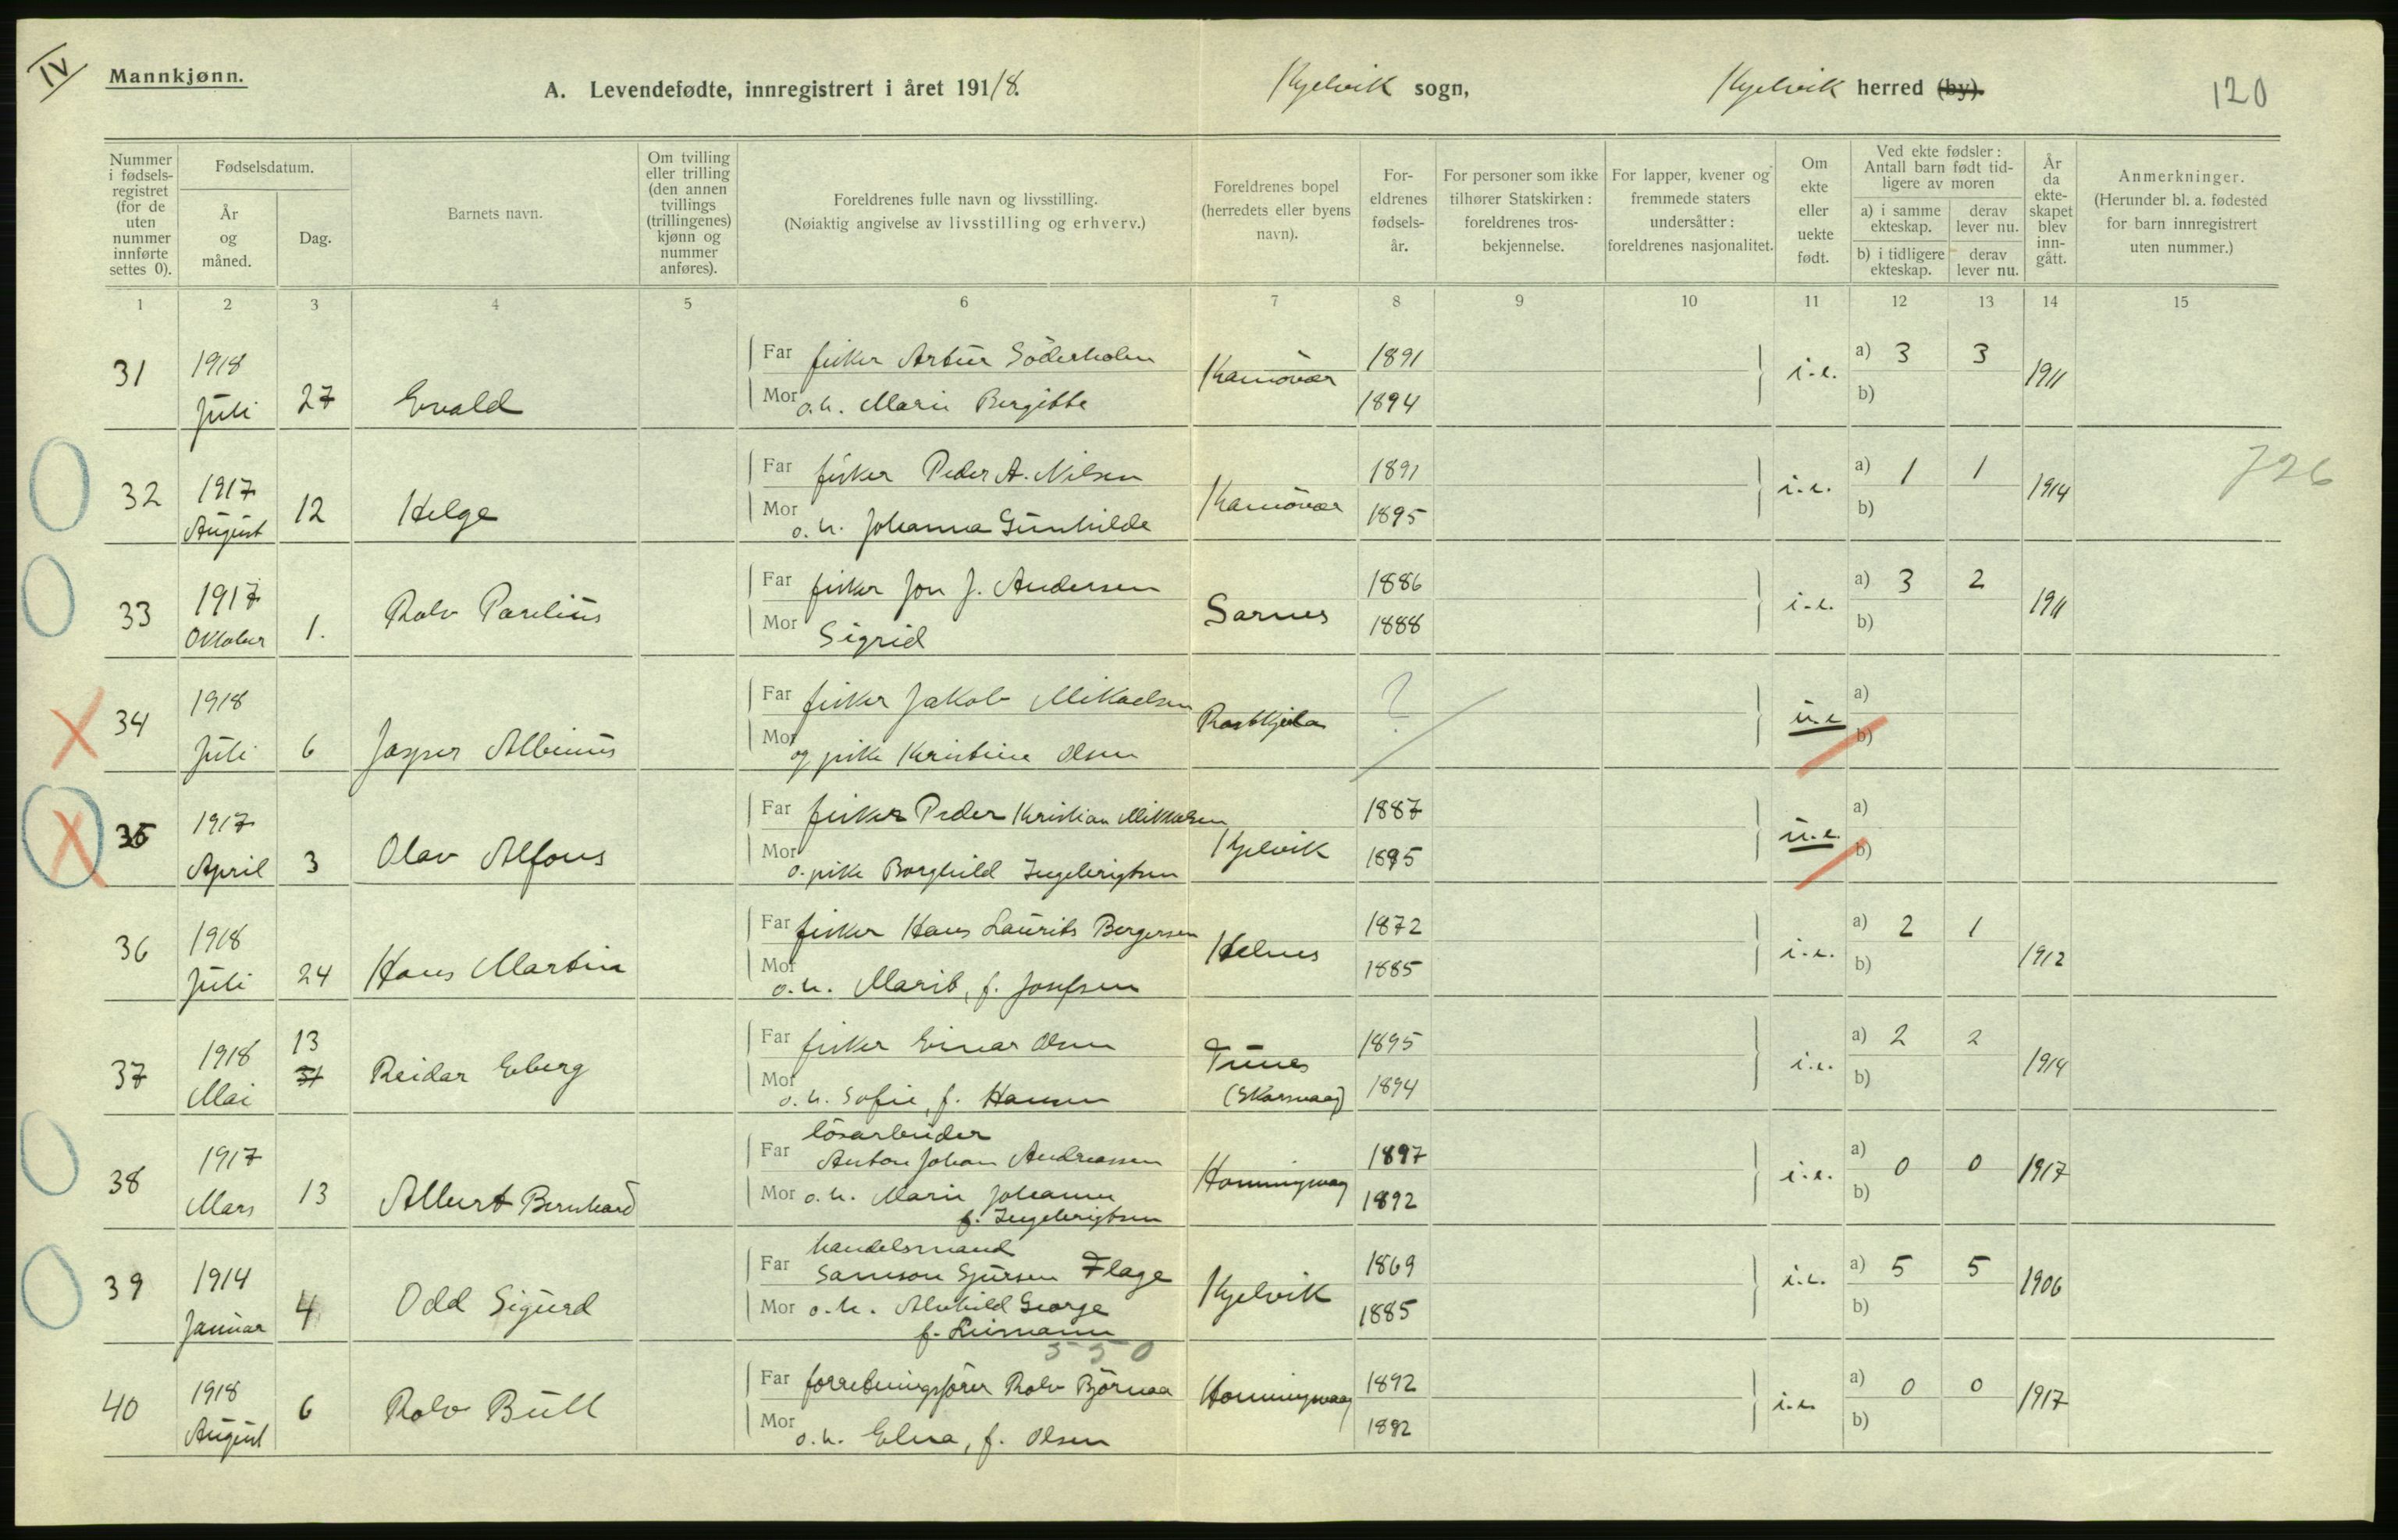 IV
Mannkjønn.
A. Levendefødte, innregistrert i året 1918.
Kjelvik sogn,
Kjelvik herred (by).
120
Nummer i fødsels-registret (for de uten nummer innførte settes 0).
Fødselsdatum.
År og måned.
Dag.
Barnets navn.
Om tvilling eller trilling (den annen tvillings (trillingenes) kjønn og nummer anføres).
Foreldrenes fulle navn og livsstilling.
(Nøiaktig angivelse av livsstilling og erhverv.)
Foreldrenes bopel (herredets eller byens navn).
For-eldrenes fødsels-år.
For personer som ikke tilhører Statskirken: foreldrenes tros-bekjennelse.
For lapper, kvener og fremmede staters undersåtter: foreldrenes nasjonalitet.
Om ekte eller uekte født.
Ved ekte fødsler: Antall barn født tid-ligere av moren
a) i samme ekteskap.
derav lever nu.
b) i tidligere ekteskap.
derav lever nu.
År da ekte-skapet blev inn-gått.
Anmerkninger.
(Herunder bl. a. fødested for barn innregistrert uten nummer.)
1 2 3 4 5 6 7 8 9 10 11 12 13 14 15
31 1918 Juli 27 Evald
Far fisker Artur Söderholm
Mor o.h. Marie Bergitte
Kamövær 1891 1894 i.e. a) 3 3 b) 1911
32 1917 August 12 Helge
Far fisker Peder A. Nilsen
Mor o.h. Johanna Gunhilde
Kamövær 1891 1895 i.e. a) 1 1 b) 1914
726
33 1917 Oktober 1. Rolv Parelius
Far fisker Jon J. Andersen
Mor Sigrid
Sarnes 1886 1888 i.e. a) 3 2 b) 1911
34 1918 Juli 6 Jasper Albinus
Far fisker Jakob Mikaelsen
Mor og pike Kristine Olsen
? u.e. a) b)
35 1917 April 3 Olav Alfons
Far fisker Peder Kristian Mikkalsen
Mor o. pike Borghild Ingebrigtsen
Kjelvik 1887 1895 u.e. a) b)
36 1918 Juli 24 Hans Martin
Far fisker Hans Laurits Bergersen
Mor o.h. Marit, f. Josefsen
Helnes 1872 1885 i.e. a) 2 1 b) 1912
37 1918 Mai 13 31 Reidar Eberg
Far fisker Einar Olsen
Mor o.h. Sofie, f. Hansen
Tunes (Skarsvaag) 1895 1894 i.e. a) 2 2 b) 1914
38 1917 Mars 13 Albert Bernhard
lösarbeider
Far Anton Johan Andreassen
Mor o.h. Marie Johanne
f. Ingebrigtsen
Honningsvaag 1897 1892 i.e. a) 0 0 b) 1917
39 1914 Januar 4 Odd Sigurd
handelsmand
Far Samson Sjursen Flage
Mor o.h. Alvhild George
f.
Kjelvik 1869 1885 i.e. a) 5 5 b) 1906
550
40 1918 August 6 Rolv Bull
Far forretningsförer Rolv Björnaa
Mor o.h. Elna, f. Olsen
Honningsvaag 1892 1892 i.e. a) 0 0 b) 1917